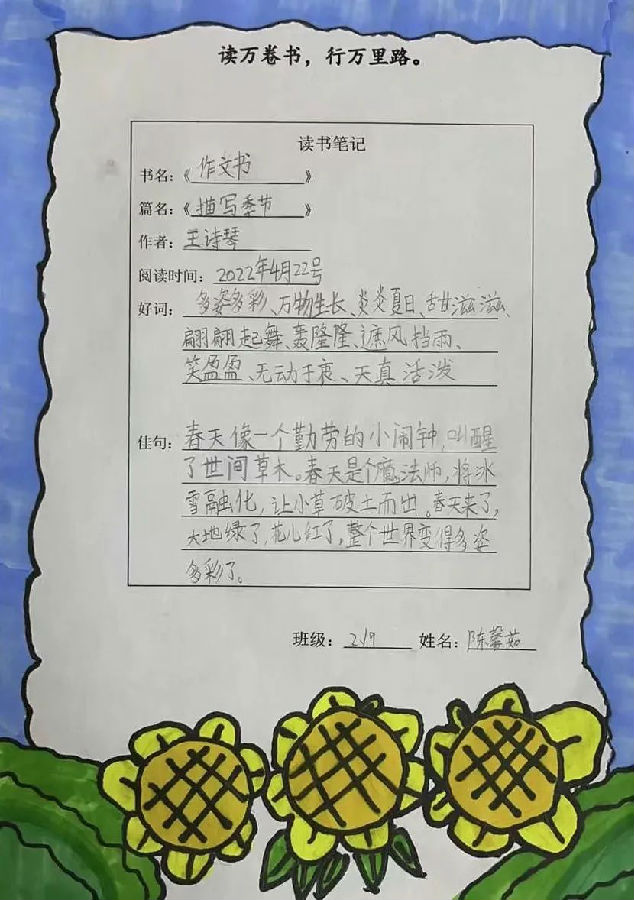 读万卷书，行万里路。
读书笔记
书名：《作文书》
篇名：《描写季节》
作者：王诗琴
阅读时间：2022年4月22号
好词：多姿多彩、万物生长、炎炎夏日、甜滋滋、
翩翩起舞、轰隆隆、遮风挡雨、
笑盈盈、无动于衷、天真活泼
佳句：春天像一个勤劳的小闹钟，叫醒
了世间草木。春天是个魔法师，将冰
雪融化，让小草破土而出。春天来了，
大地绿了，花儿红了，整个世界变得多姿
多彩了。
班级：2/9 姓名：陈馨茹